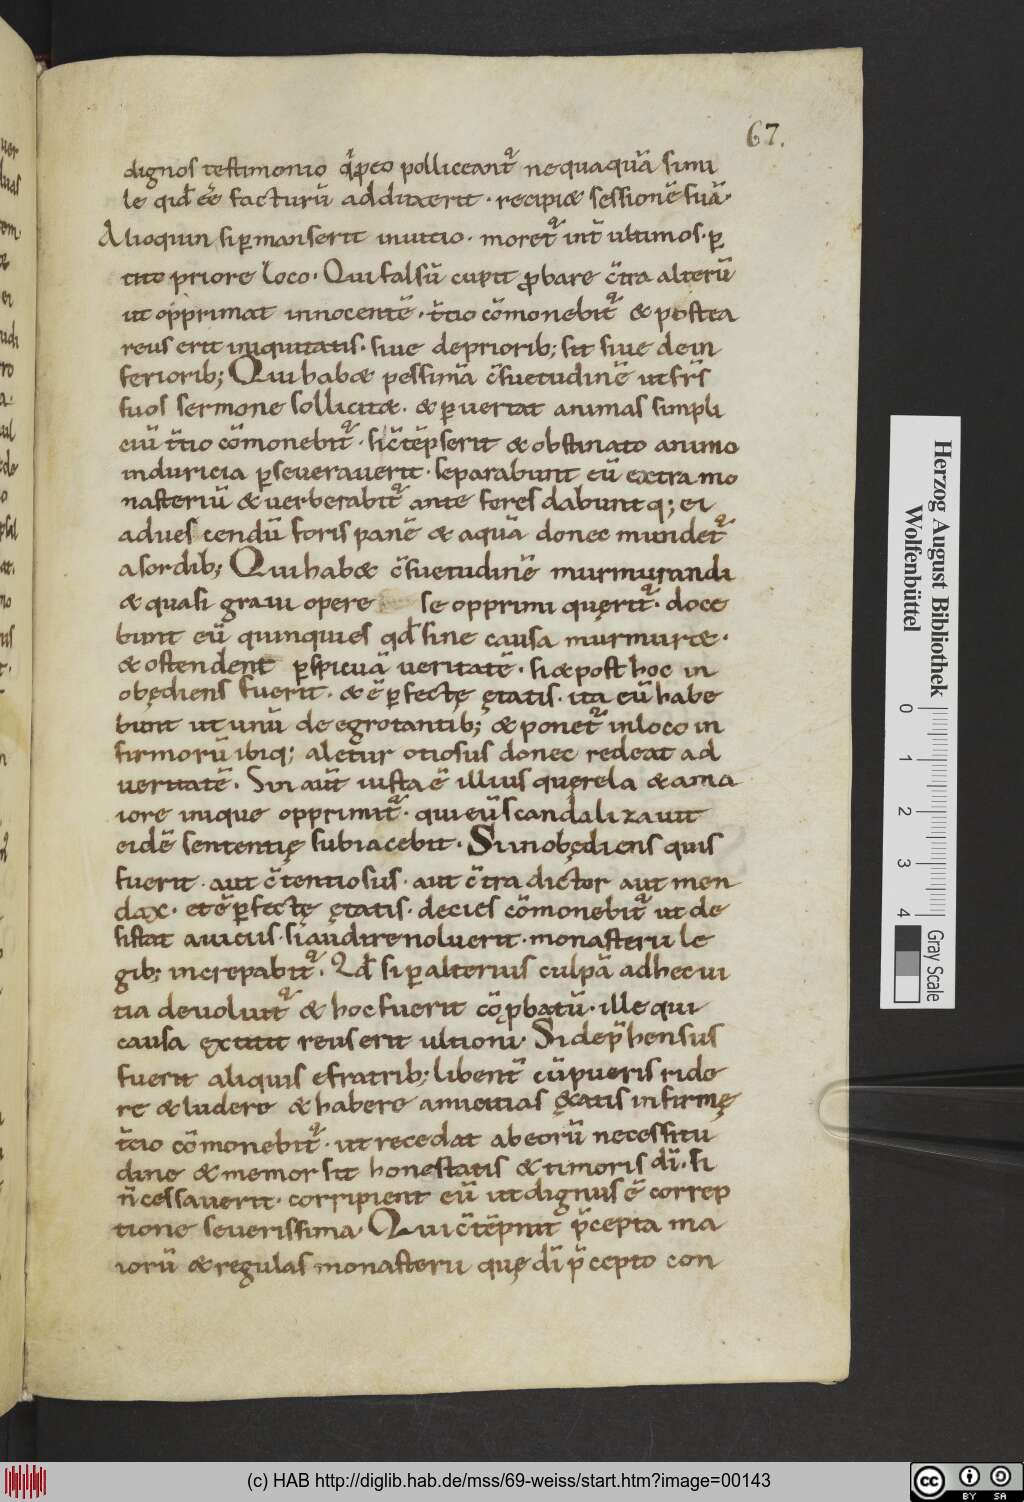 67.
dignos testimonio q̄ p̄ eo polliceant᷑ nequaquā simi
le qid̄ eē facturū adduxerit · recipiæ sessionē suā·
Alioquin si ꝑmanserit inuitio · moret᷑ int̄ ultimos · ꝑ
tito priore loco · Qui falsū cupit ꝓbare c̄tra alterū
ut opprimat innocentē · t̄tio cōmonebit᷑ & postea
reus erit iniquitatis · siue de priorib; sit siue de in
feriorib; Qui habæ pessimā c̄suetudinē ut frī̄s
suos sermone sollicitæ · & ꝑuertat animas simpli
ciū t̄tio cōmonebit᷑ · si c̄tēpserit & obstinato animo
induricia ꝑseuerauerit · separabunt eū extra mo
nasteriū & uerberabit᷑ ante fores dabuntq; ei
aduescendū foris panē & aquā donec mundet᷑
a sordib; Qui habæ c̄suetudinē murmurandi
& quasi graui opere se opprimi querit᷑ · doce
bunt eū quinquies qd̄ sine causa murmuræ ·
& ostendent ꝑspicuā ueritatē · si & post hoc in
obędiens fuerit · & ē ꝑfectę ętatis · ita eū habe
bunt ut unū de egrotantib; & ponet᷑ in loco in
firmorū ibiq; aletur otiosus donec redeat ad
ueritatē · Sin aūt iusta ē illius querela & a ma
iore inique opprimit᷑ · qui eū scandalizauit
eidē sententię subiacebit · Si inobędiens quis
fuerit · aut c̄tentiosus · aut c̄tradictor aut men
dax · et ē ꝑfectę ętatis · decies cōmonebit᷑ ut de
sistat a uiciis · si audire noluerit · monasterii le
gib; increpabit᷑ · Qd̄ si ꝑ alterius culpā ad hec ui
tia deuoluit᷑ & hoc fuerit cōꝓbatū · ille qui
causa extitit reus erit ultioni · Si dep̄hensus
fuerit aliquis e fratrib; libent̄ cū pueris ride
re & ludere & habere amicitias ętatis infirmę
t̄tio cōmonebit᷑ · ut recedat ab eorū necessitu
dine & memor sit honestatis & timoris dī · si
n̄ cessauerit · corripient eū ut dignus ē correp
tione seuerissima · Qui c̄tēpnit p̄cepta ma
iorū & regulas monasterii quę dī p̄cepto con
Herzog August Bibliothek
Wolfenbüttel
0 1 2 3 4
Gray Scale
(c) HAB http://diglib.hab.de/mss/69-weiss/start.htm?image=00143
cc BY SA